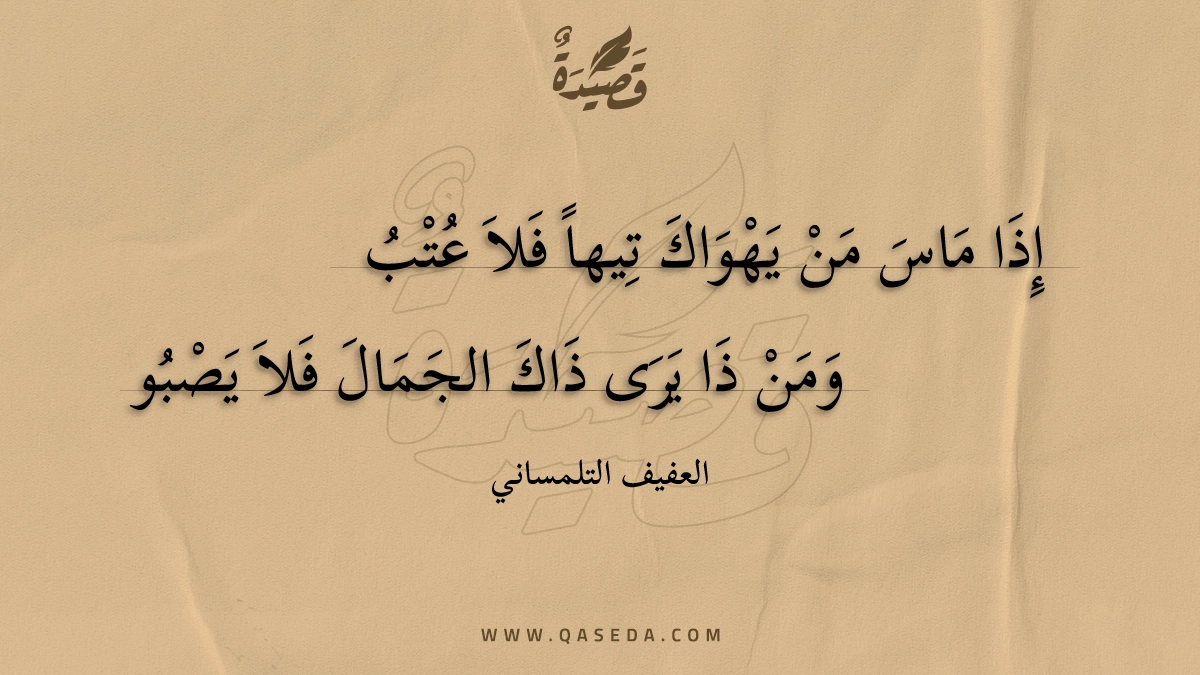 قَصِيدَةٌ
إِذَا مَاسَ مَنْ يَهْوَاكَ تِيهاً فَلاَ عُتْبُ
وَمَنْ ذَا يَرَى ذَاكَ الجَمَالَ فَلاَ يَصْبُو
العفيف التلمساني
WWW.QASEDA.COM